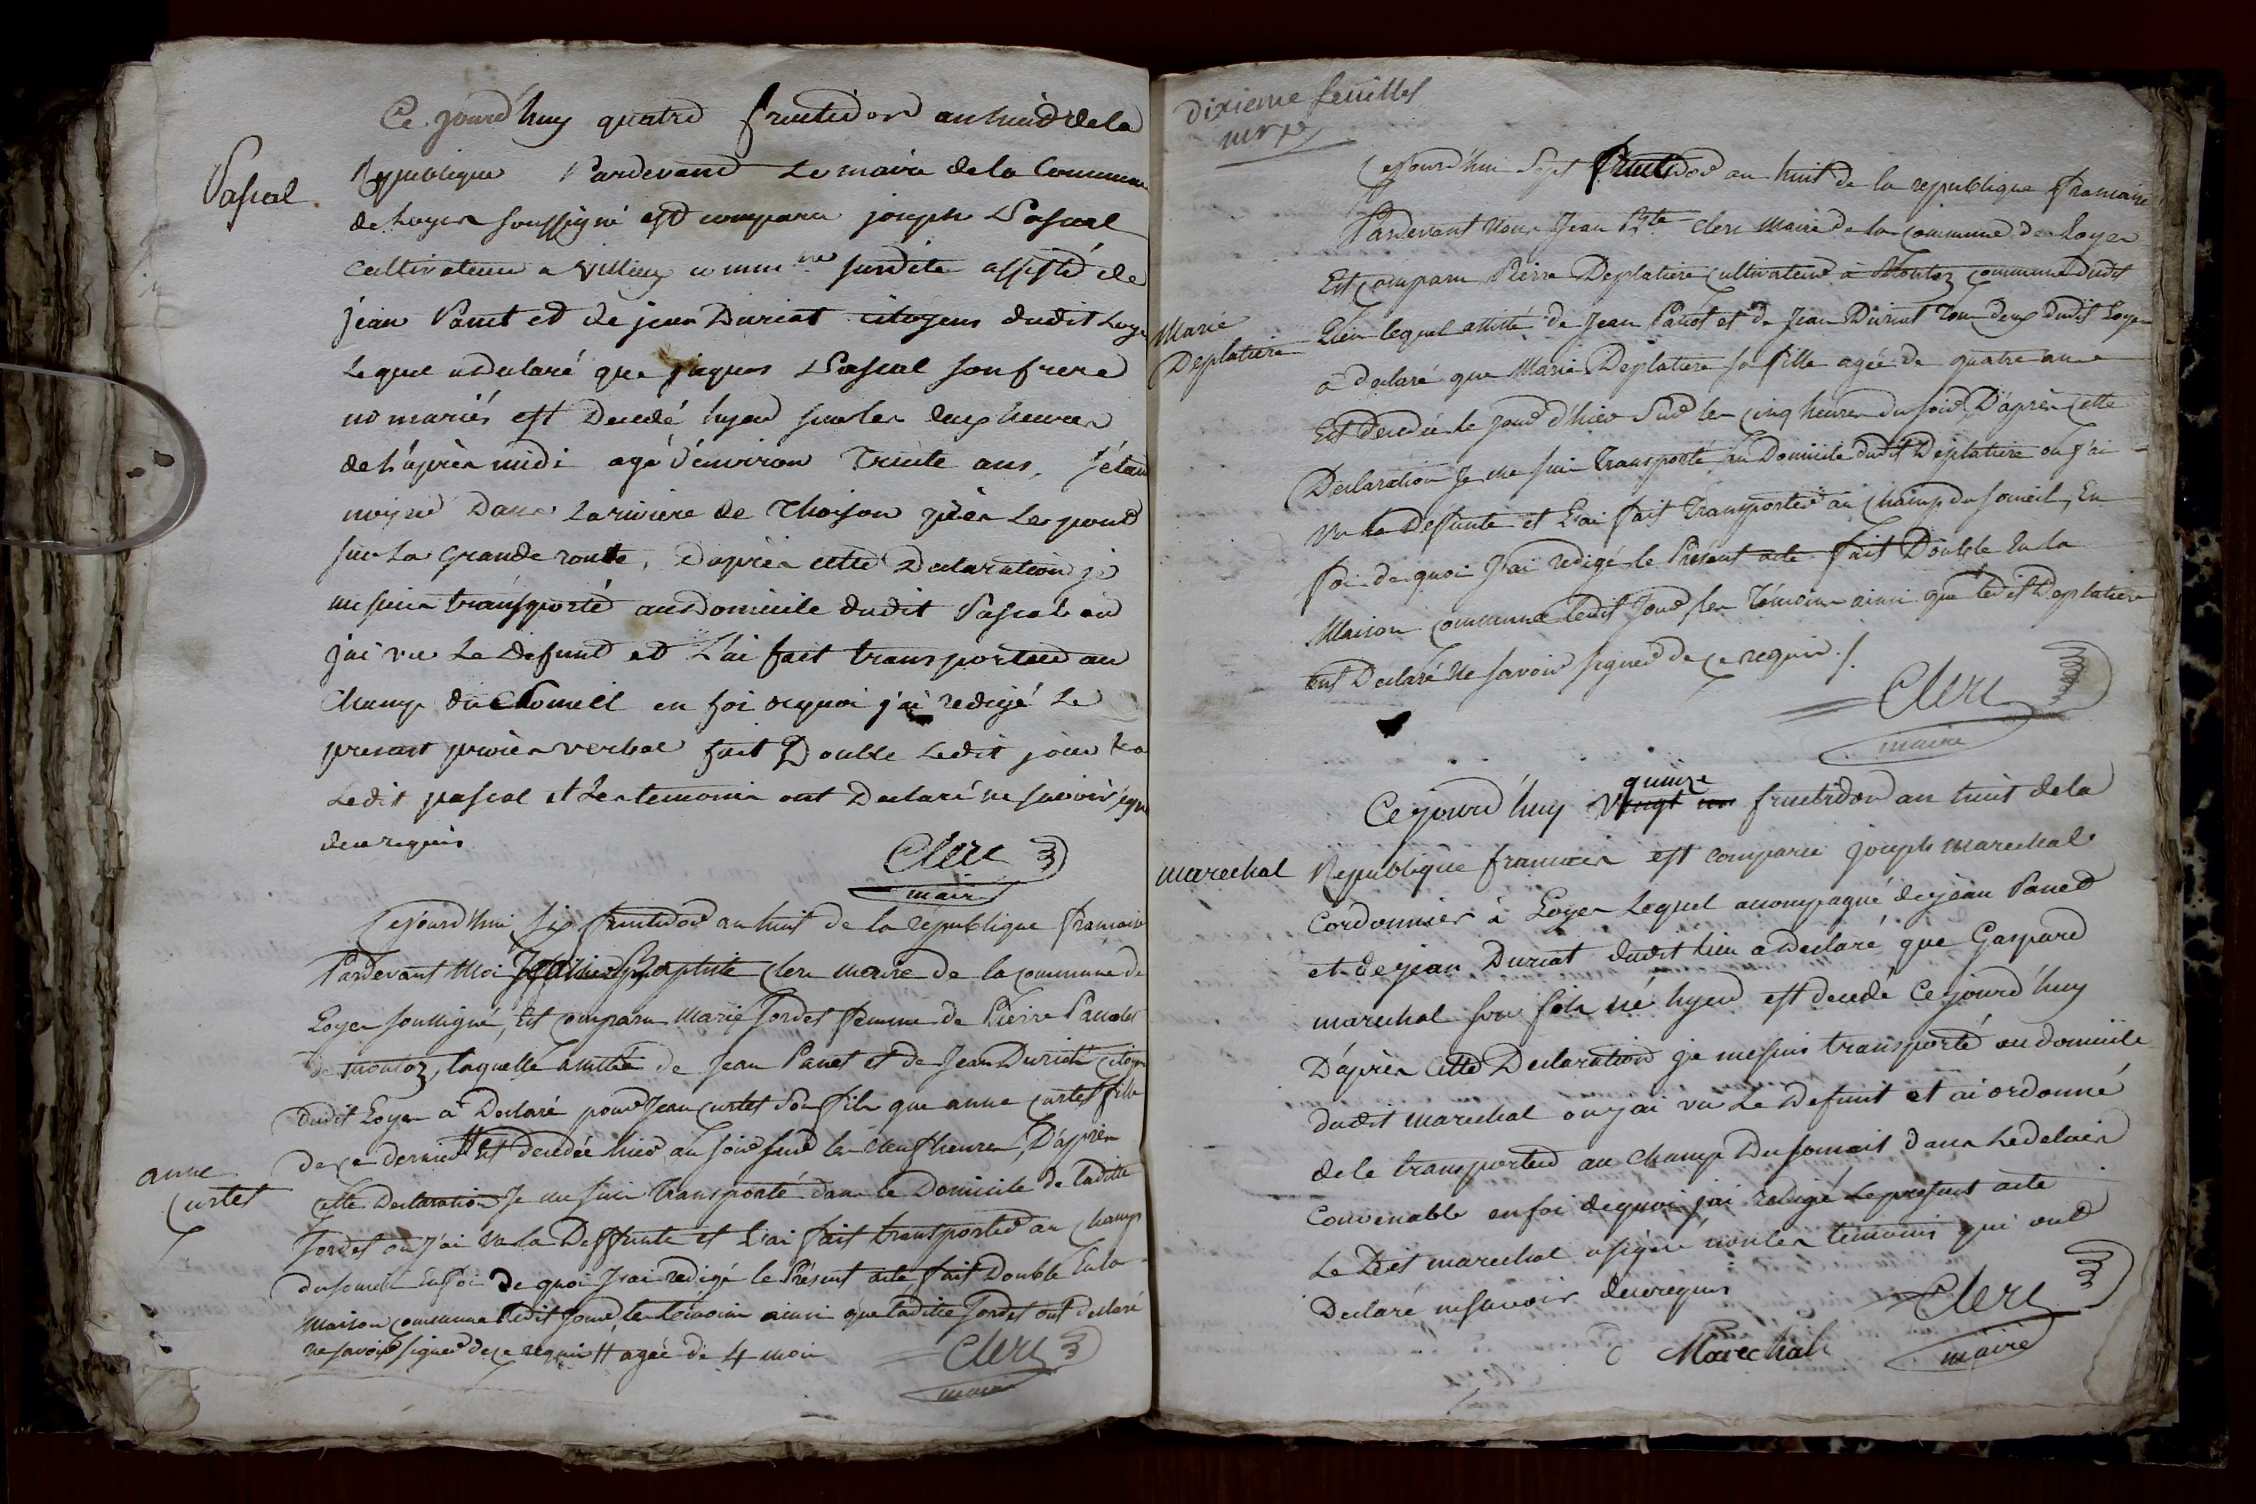 Ce jourd'huy quatre fructidor an huit de la
Pascal
Republique Pardevant Le maire de la Commune
de Loyes soussigné est comparu joseph Pascal
cultivateur a villieu comm.ne susdite assisté de
jean Panet et de jean Duriat citoyens dudit Loye
Lequel a declaré que jaques Pascal son frere
no mariés est Decedé hyer sur les deux heures
de l'après midi agé d'environ Trente ans, s'étant
noyé Dans La riviere de Thoison près Le pont
sur La grande route, D'après cette Declaration je
me suis transporté au Domicile dudit Pascal où
j'ai vu Le Defunt et L'ai fait transporter au
Champ du Someil en foi de quoi j'ai redigé Le
present procès verbal fait Double Ledit jour
Ledit pascal et Les temoins ont Declaré ne savoir signe
de ce requis
Clerc
maire
Cejourd'hui six fructidor an huit de la republique francaise
Pardevant Moi Jean Baptiste Clerc maire de la commune de
Loyes soussigné, Est comparu Marie Tordet femme de Pierre
de montoz, laquelle assistée de Jean Panet et de Jean Duriat citoyens
dudit Loyes a Declaré pour Jean Curtet Son fils que anne Curtet fille
de ce dernier # est decedée hier au soir sur les neuf heures, D'après
anne
Curtet
cette Declaration Je me suis Transporté dans le Domicile de ladite
Tordet où J'ai vu La Deffunte et L'ai fait transporter au Champ
du someil En foi de quoi J'ai redigé le Présent acte fait Double En la
Maison commune Ledit Jour, les témoins ainsi que ladite Tordet ont declaré
ne savoir signer de ce requis # agée de 4 mois
Clerc
maire
Dixieme feuillet
Cejourd'hui Sept fructidor an huit de la republique francaise
Pardevant Nous Jean B.te Clerc Maire de la commune de Loyes
Est comparu Pierre Deplatiere Cultivateur à Montoz commune dudit
Marie
Deplatiere
Lieu lequel assisté de Jean Panet et de Jean Duriat Tous deux dudit Loyes
a declaré que Marie Deplatiere sa fille agée de quatre ans
Est decedée le jour d'hier Sur les cinq heures du soir, D'après Cette
Declaration Je me suis Transporté au Domicile dudit Deplatiere où J'ai
Vu La Deffunte et L'ai fait Transporter au Champ du someil, En
foi de quoi J'ai redigé le Présent acte fait Double En la
Maison Commune Ledit Jour, les Témoins ainsi que ledit Deplatiere
ont Declaré Ne savoir signer de ce requis ./.
Clerc
maire
quinze
Ce jourd'huy vingt un fructidor an huit de la
marechal
Republique francaise est comparu joseph marechal
Cordonnier à Loyes Lequel accompagné de jean Panet
et de jean Duriat dudit Lieu a Declaré que Gaspard
marechal son fils né hyer est decedé Ce jourd'huy
D'après Cette Declaration je me suis transporté au domicile
dudit marechal ou j'ai vu Le Defunt et ai ordonné
de le transporter au Champ Du someil dans Le delais
Convenable en foi de quoi j'ai redigé Le present acte
Le Dit marechal a signé non les temoins qui ont
Declaré ne savoir de ce requis
Clerc
Marechal
maire